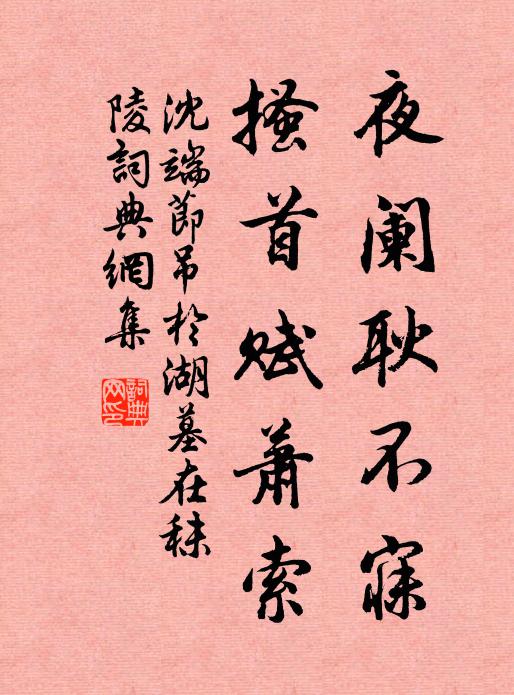 夜阑耿不寐
搔首赋萧索
沈端節吊於湖墓在秣
陵詞典網集
詞典网印